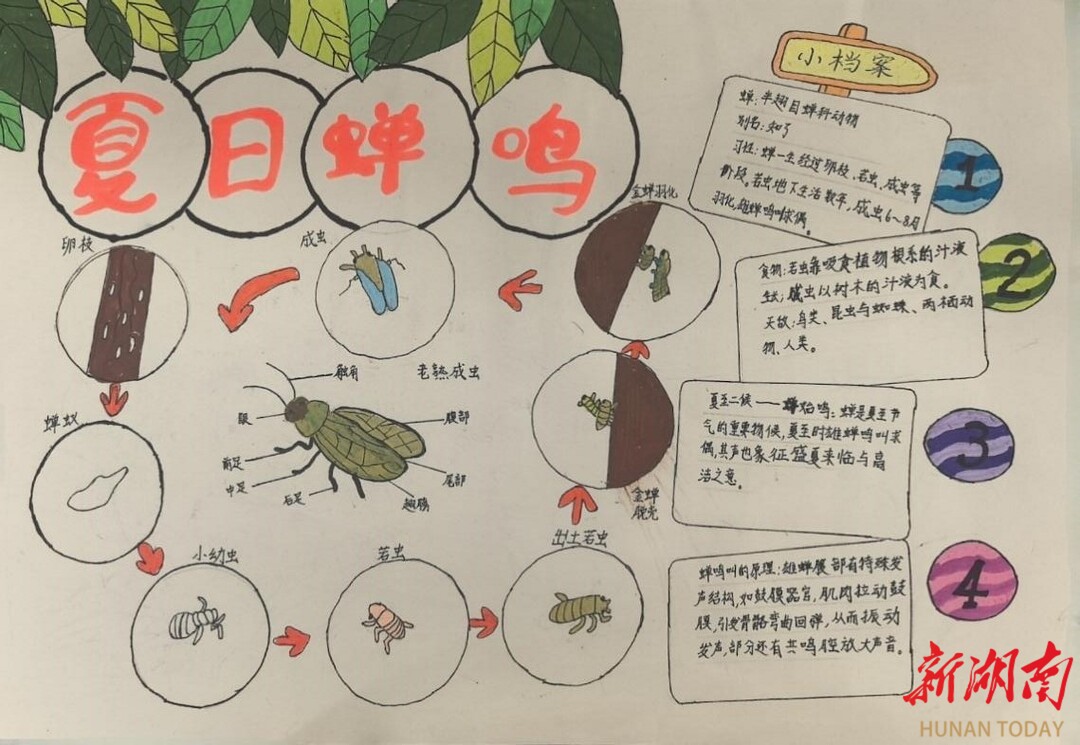 夏日蝉鸣
小档案
蝉:半翅目蝉科动物
别名:知了
习性:蝉一生经过卵枝、若虫、成虫等
阶段。若虫地下生活数年,成虫6~8月
羽化,雄蝉鸣叫求偶。
1
食物:若虫靠吸食植物根系的汁液
生长;成虫以树木的汁液为食。
天敌:鸟类、昆虫与蜘蛛、两栖动
物、人类。
2
夏至二候——蝉始鸣:蝉是夏至节
气的重要物候,夏至时雄蝉鸣叫求
偶,其声也象征盛夏来临与高
洁之意。
3
蝉鸣叫的原理:雄蝉腹部有特殊发
声结构,如鼓膜器官,肌肉拉动鼓
膜,引发骨骼弯曲回弹,从而振动
发声,部分还有共鸣腔放大声音。
4
卵枝
成虫
金蝉羽化
触角
老熟成虫
眼
腹部
前足
中足
后足
尾部
翅膀
蝉蚁
金蝉
脱壳
小幼虫
若虫
出土若虫
新湖南
HUNAN TODAY